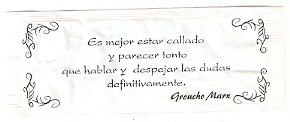 Es mejor estar callado
y parecer tonto
que hablar y despejar las dudas
definitivamente.
Groucho Marx